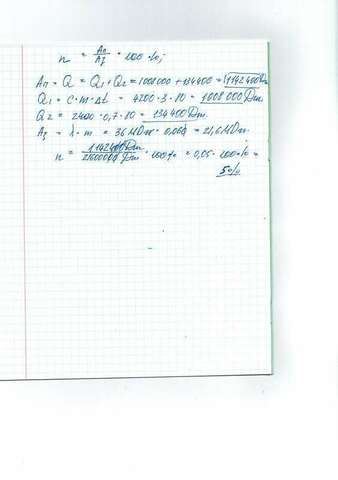 n = Aп/Aз · 100 %;
Aп = Q = Q1 + Q2 = 1008000 + 134400 = 1142400 Дж.
Q1 = c · m · Δt = 4200 · 3 · 80 = 1008 000 Дж.
Q2 = 2400 · 0,7 · 80 = 134400 Дж.
Aз = λ · m = 36 МДж · 0,006 = 21,6 МДж.
n = 1142400 Дж / 21600000 Дж · 100 % = 0,05 · 100 % =
5 %